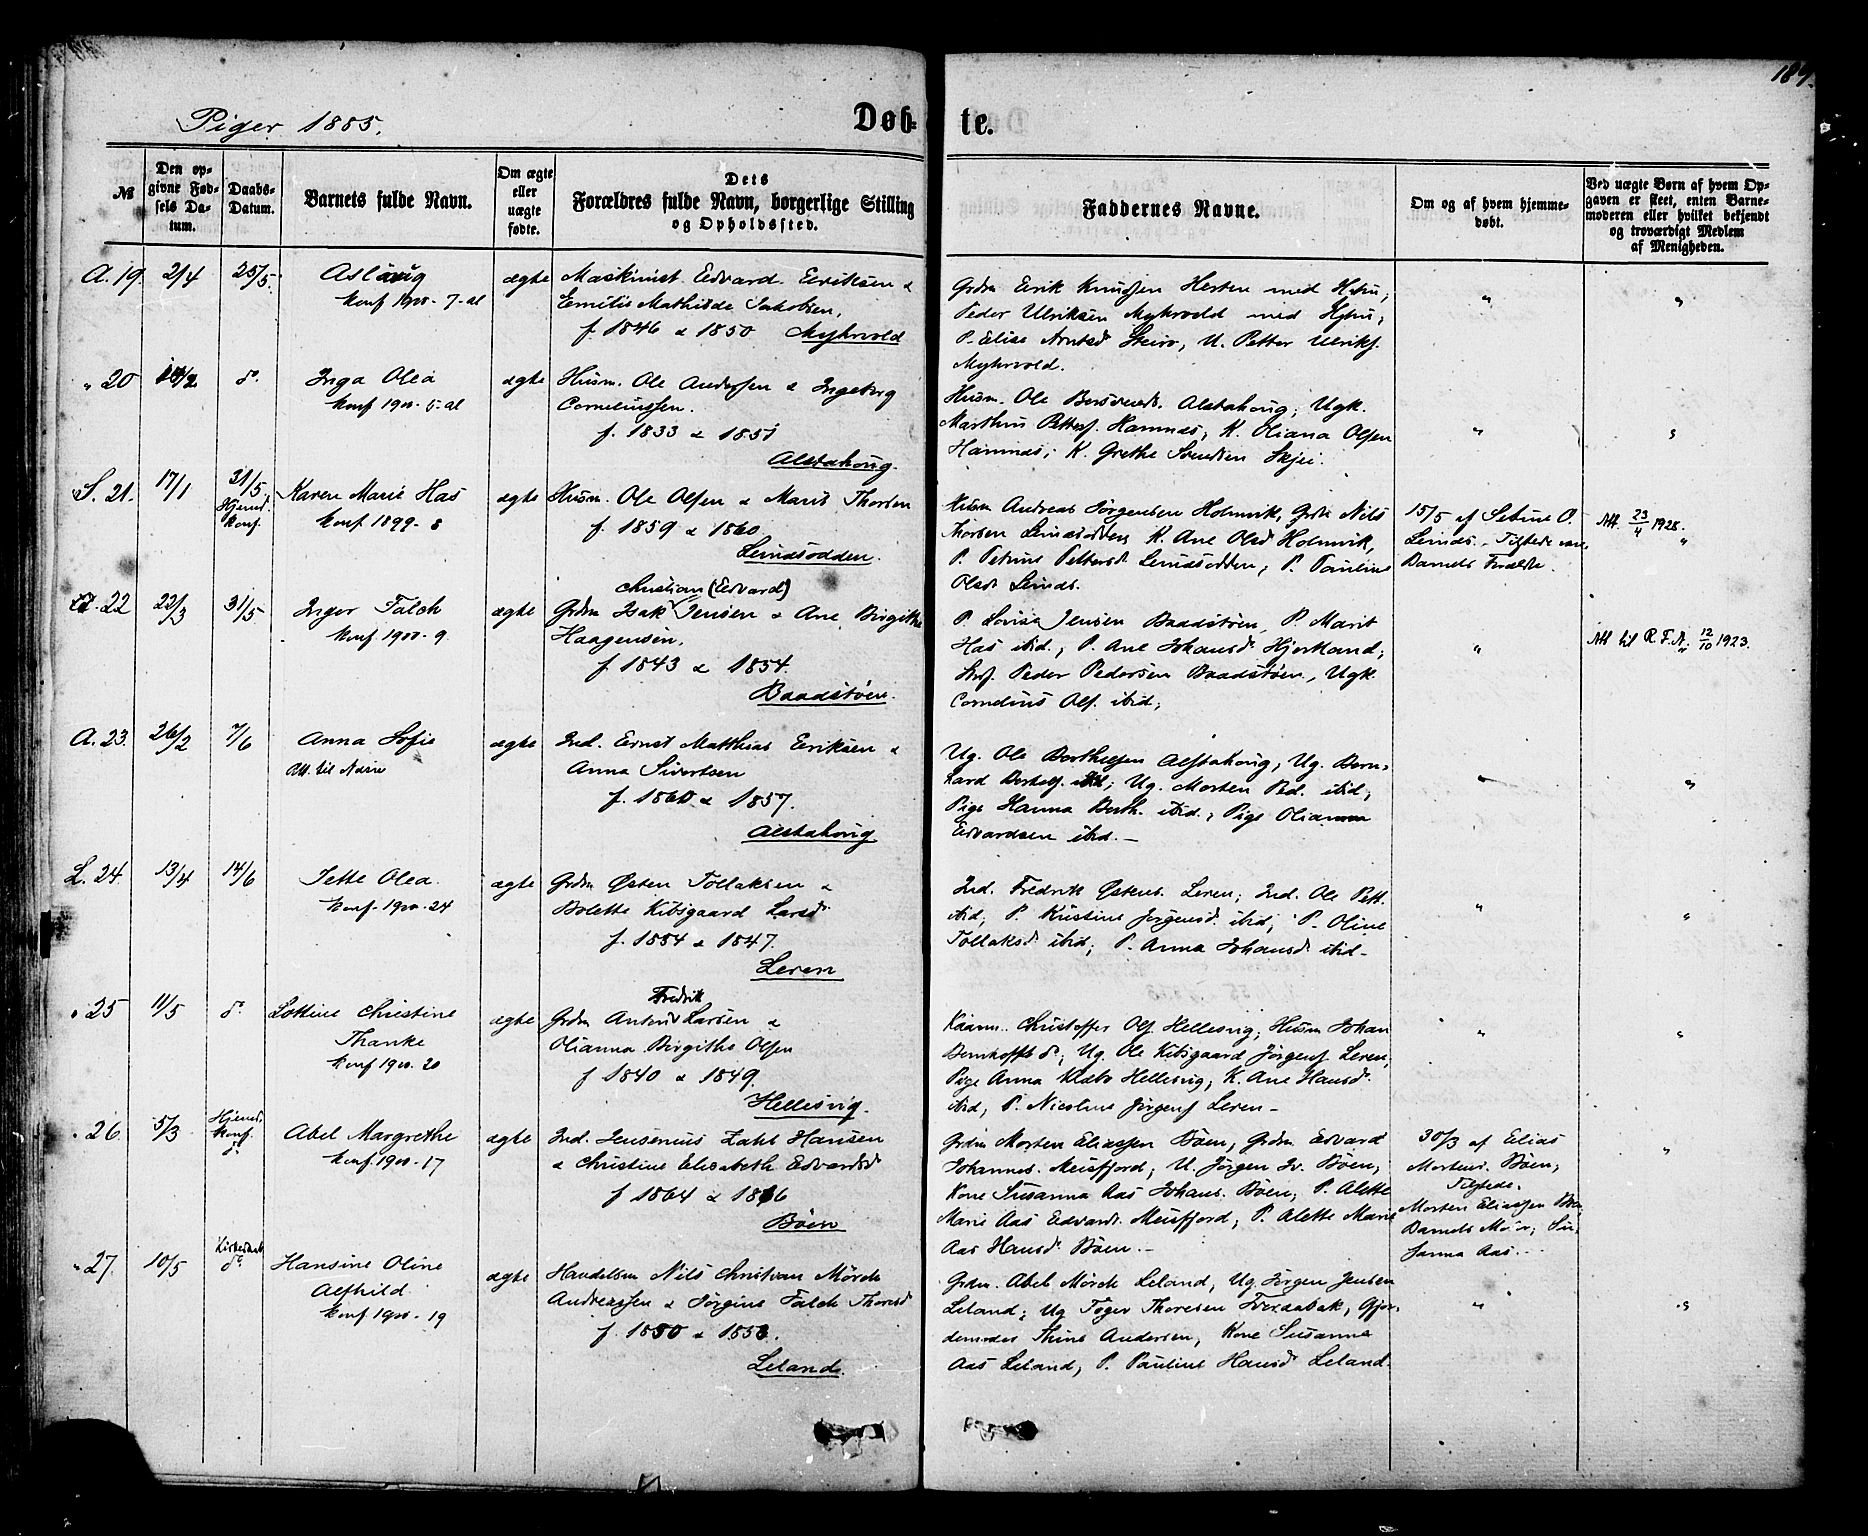 189.
Piger 1885.
Døb-te.
№
Den op-
givne Fød-
sels Da-
tum.
Daabs-
Datum.
Barnets fulde Navn.
Om ægte
eller
uægte
fødte.
Dets
Forældres fulde Navn, borgerlige Stilling
og Opholdssted.
Faddernes Navne.
Om og af hvem hjemme-
døbt.
Ved uægte Børn af hvem Op-
gaven er skeet, enten Barne-
moderen eller hvilket bekjendt
og troværdigt Medlem
af Menigheden.
A. 19. 2/4 25/5. Aslaug
Konf 1900-7-al
ægte
Maskinist Edvard Eriksen &
Emilie Mathilde Jakobsen,
f. 1846 & 1850 Myhrvold
Grdm Erik Knudsen Hesten med Hstru,
Peder Ulriksen Myhrvold med Hstru,
P. Elise Arntsd Steiro, U. Petter Ulriks.
Myhrvold.
" "
" 20 d°. Inga Olea
Konf 1900-5-al
ægte
Husm. Ole Andersen & Ingeborg
Corneliussen.
f. 1833 & 1851
Alstahoug.
Husm. Ole Alstahoug; Ugk.
Marthin Petters. Hamnes, K. Oliana Olsen
Hamnes; K. Grethe Svendsen Skjei.
" "
S. 21. 17/1 31/5
Hjemd.
konf.
Karen Marie Has
Konf 1899-8
ægte
Husm. Ole Olsen & Marit Thorsen
f. 1859 & 1860
Leinesodden.
Husm Andreas Jørgensen Holmvik, Grdm Nils
Thorsen Leinesodden, K. Ane Olsd Holmvik,
P. Petrine Pettersd Leinesodden, P. Pauline
Olsdt Leines.
15/5 af Sebine O.
Leines. Tilstede vare
Barnets Forældre.
Att. 23/4 1928.
"
22 22/3 31/5 Inger Falch
Konf 1900-9
ægte
Christian (Edvard)
Grdm Isak Jensen & Ane Birgitha
Haagensen,
f. 1843 & 1854.
Baadstøen.
P. Lovise Jensen Baadstøen, P. Marit
Has ibid., P. Ane Johansd. Hjortland;
Peder Pedersen Baadstøen, Ugk.
Cornelius Ols. ibid,
"
Att til R.F.A. 12/10 1923.
"
A. 23. 26/2 7/6 Anna Sofie
Att. til
ægte
Ind. Ernst Matthias Eriksen &
Anna Sivertsen
f. 1860 & 1857.
Alstahoug
Ug. Ole Berthelsen Alstahoug, Ug. Bern-
hard Berthels. ibid; Ug. Morten Ped. ibid,
Pige Hanna Berth. ibid., Pige Olianna
Edvardsen ibid.—
" "
L. 24. 13/4 14/6 Jette Olea.
Konf-1900-24
ægte
Grdm Østen Tollaksen &
Bolette Kibsgaard Larsd
f. 1854 & 1847.
Leren
Ind. Fredrik Østens. Leren; Ind. Ole Pett.
ibid; P. Kristine Jørgensd. ibid; P. Oline
Tollaksd ibid; P. Anna Johansd. ibid-
" "
" 25 11/5 d°. Lottine Christine
Thanke
Konf 1900.20
ægte
Fredrik
Grdm Anton Larsen &
Olianna Birgitha Olsen
f 1840 & 1849.
Hellesvig.
Kaarm. Christoffer Ols. Hellesvig; Husm Johan
Bernhofft d°, Ug. Ole Kibsgaard Jørgens. Leren,
Pige Anna Klæbo Hellesvig, K. Ane Hansd.
ibid, P. Nicoline Jørgens Leren-
" "
" 26. 5/3 Hjemd.
konf.
d°
Abel Margrethe
Konf. 1900-17
ægte
Ind. Jensenius Zahl Hansen
& Christine Elisabeth Edvardsd
f 1864 & 1866
Bøen
Grdm Morten Eliassen Bøen, Grdm Edvard
Johannes. Meisfjord; U. Jørgen Jo. Bøen,
Kone Susanna Aas Johans. Bøen, P. Alette
Marie Aas Edvardt. Meisfjord, P. Alette Marie
Aas Hansd. Bøen.-
30/3 af Elias
Mortens. Bøen,
Tilstede.
Morten Eliassen Bøen,
Barnets Mo'r, Su-
sanna Aas.--
"
" 27. 10/5 d°. Hansine Oline
Alfhild.
Konf 1900-19
ægte
Handelsm Nils Christian Mörch
Andreassen & Jørgine Falch Thoresd
f. 1850 & 1858.
Leland.
Grdm. Abel Mörch Leland, Ug. Jørgen Jensen
Leland; Ug Töger Thoresen Sverdabak, Gjor-
demoder Thine Andersen, Kone Susanna
Aas Leland, P. Pauline Hansd Leland.
" "